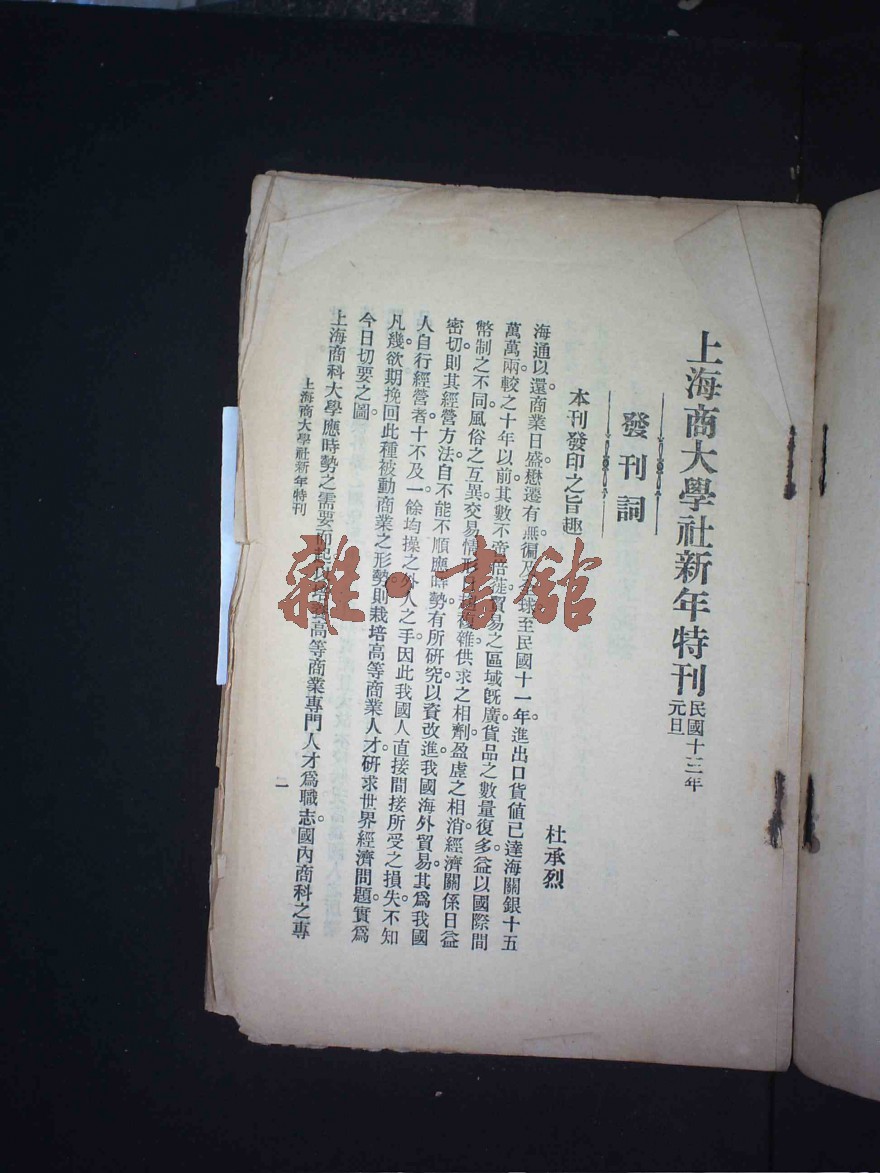 上海商大學社新年特刊
民國十三年
元旦
發刊詞
本刊發印之旨趣
杜承烈
海通以還。商業日盛。懋遷有無。徧及全球。至民國十一年。進出口貨値已達海關銀十五
萬萬兩。較之十年以前。其數不啻倍蓰。貿易之區域旣廣。貨品之數量復多。益以國際間
幣制之不同。風俗之互異。交易情形日雜。供求之相劑。盈虛之相消。經濟關係日益
密切。則其經營方法。自不能不順應時勢。有所硏究。以資改進。我國海外貿易。其爲我國
人自行經營者。十不及一。餘均操之外人之手。因此我國人直接間接所受之損失。不知
凡幾。欲期挽回此種被動商業之形勢。則栽培高等商業人才。硏求世界經濟問題。實爲
今日切要之圖。
上海商科大學應時勢之需要而起。以高等商業專門人才爲職志。國內商科之專
上海商大學社新年特刊
雜·書館